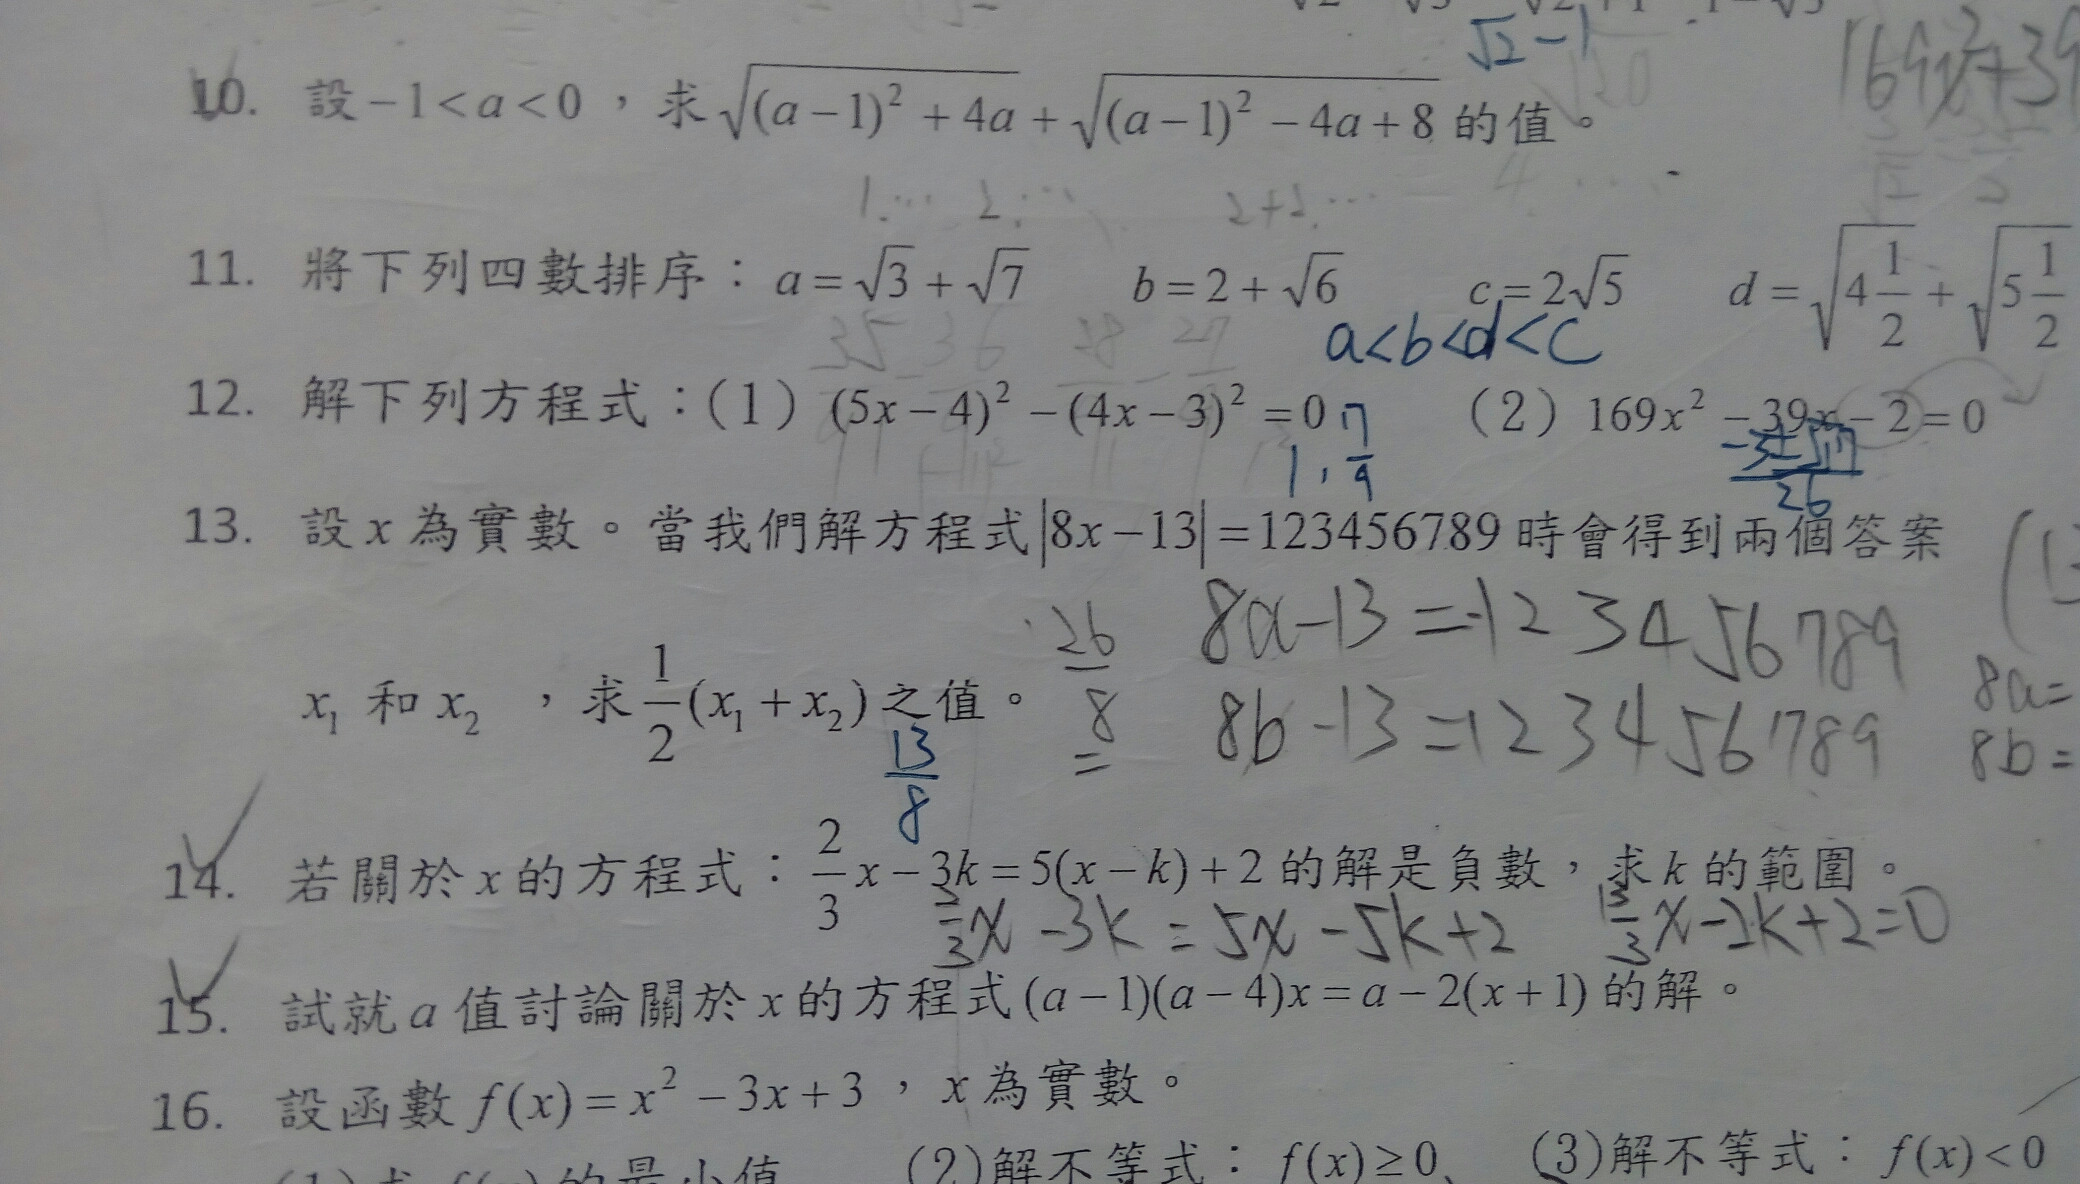 √2 − 1
169x² + 39
10. 設 −1 < a < 0 ，求 √((a−1)² + 4a) + √((a−1)² − 4a + 8) 的值。
1.… 2.… 2+2.… 4…
11. 將下列四數排序：a = √3 + √7 b = 2 + √6 c = 2√5 d = √(4 1/2) + √(5 1/2)
a<b<d<c
12. 解下列方程式：(1) (5x − 4)² − (4x − 3)² = 0 (2) 169x² − 39x − 2 = 0
1, 7/9
13. 設 x 為實數。當我們解方程式 |8x − 13| = 123456789 時會得到兩個答案
26/8 8a−13 = −123456789
x₁ 和 x₂ ，求 1/2 (x₁ + x₂) 之值。
8b−13 = 123456789
8a=
8b=
13/8
14. 若關於 x 的方程式：2/3 x − 3k = 5(x − k) + 2 的解是負數，求 k 的範圍。
x − 3k = 5x − 5k + 2 13/3 x − 2k + 2 = 0
15. 試就 a 值討論關於 x 的方程式 (a − 1)(a − 4)x = a − 2(x + 1) 的解。
16. 設函數 f(x) = x² − 3x + 3 ，x 為實數。
(1)求 f(x) 的最小值 (2)解不等式：f(x) ≥ 0、 (3)解不等式：f(x) < 0